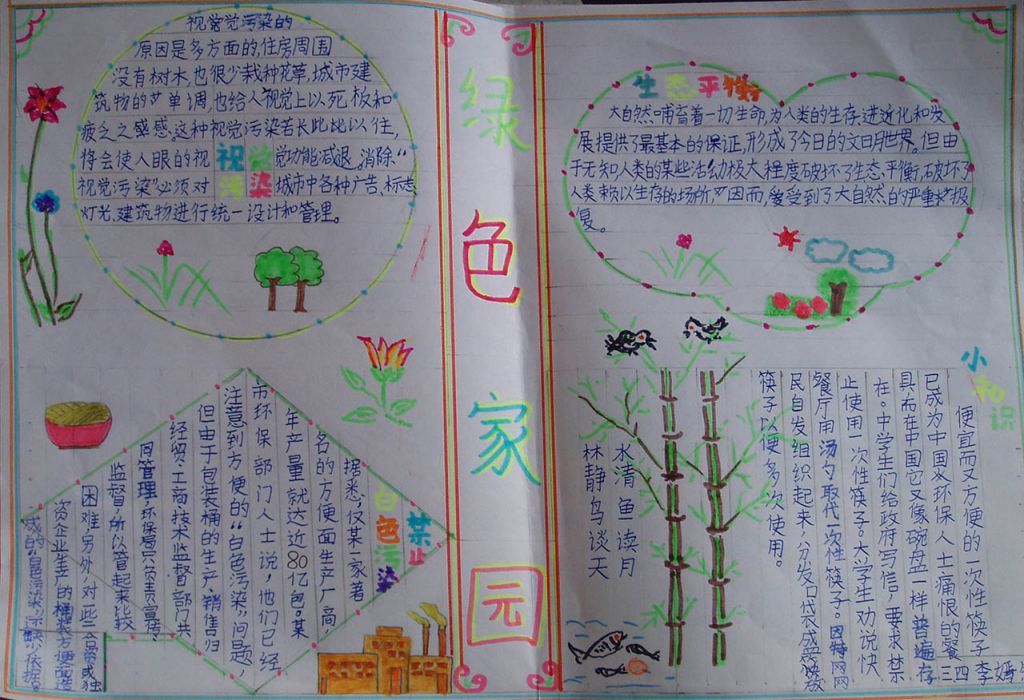 视觉觉污染的
原因是多方面的,住房周围
没有树木,也很少栽种花草,城市建
筑物的单调,也给人视觉上以死板和
疲乏之感感。这种视觉污染若长此比以往,
将会使人眼的视觉功能减退。消除“
视觉污染”必须对城市中各种广告、标志
灯光、建筑物进行统一设计和管理。
视觉
污染
绿色家园
生态平衡
大自然哺育着一切生命,为人类的生存、进近化和发
展提供了最基本的保证,形成了今日的文明世界。但由
于无知人类的某些活动极大程度破坏了生态,平衡,破坏了
人类赖以生存的场所,因而,受到了大自然的严重报
复。
白色污染
禁止
据悉,仅某一家著
名的方便面生产厂商,
年产量就达近80亿包。某
市环保部门人士说,他们已经
注意到方便的“白色污染”问题,
但由于包装桶的生产、销售归
经贸、工商、技术监督部门共
同管理,环保局只负责宣传、
监督,所以管起来比较
困难,另外,对些合资或独
资企业生产的桶装方便面造
成的“白色污染”,
小知识
便宜而又方便的一次性筷子
已成为中国从环保人士痛恨的餐
具,而在中国它又像碗盘一样普遍存
在。中学生们给政府写信,要求禁
止使用一次性筷子。大学生劝说快
餐厅用汤勺取代一次性筷子。因特网网
民自发组织起来,分发口袋
筷子以便多次使用。
水清鱼读月
林静鸟谈天
三四
李嫣